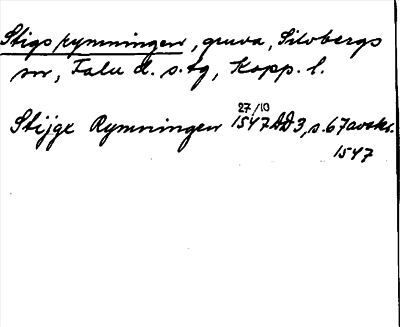 Stigsrymningen, gruva, Silvbergs
sn, Falu d. s. tg, Kopp. l.
27/10
Stijge Rymningen 1547 DD3, s. 67 avskr.
1547